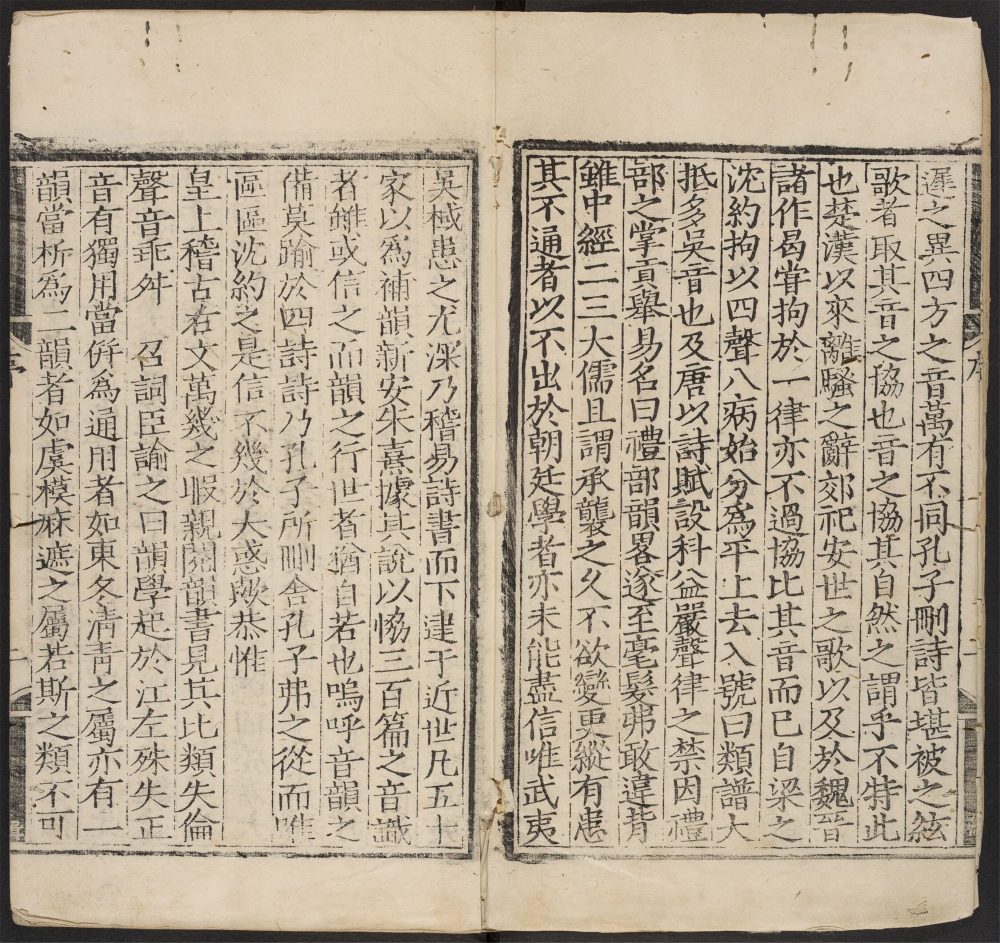 遲之異四方之音萬有不同孔子刪詩皆堪被之絃
歌者取其音之協也音之協其自然之謂乎不特此
也楚漢以來離騷之辭郊祀安世之歌以及於魏晉
諸作曷甞拘於一律亦不過協比其音而已自梁之
沈約拘以四聲八病始分爲平上去入號曰類譜大
抵多吳音也及唐以詩賦設科益嚴聲律之禁因禮
部之掌貢舉易名曰禮部韻畧遂至毫髮弗敢違背
雖中經二三大儒且謂承襲之久不欲變更縱有患
其不通者以不出於朝廷學者亦未能盡信唯武夷
吳棫患之尤深乃稽易詩書而下逹于近世凡五十
家以爲補韻新安朱熹據其說以恊三百篇之音識
者雖或信之而韻之行世者猶自若也嗚呼音韻之
備莫踰於四詩詩乃孔子所刪舍孔子弗之從而唯
區區沈約之是信不幾於大惑歟恭惟
皇上稽古右文萬幾之暇親閱韻書見其比類失倫
聲音乖舛 召詞臣諭之曰韻學起於江左殊失正
音有獨用當併爲通用者如東冬清青之屬亦有一
韻當析爲二韻者如虞模麻遮之屬若斯之類不可